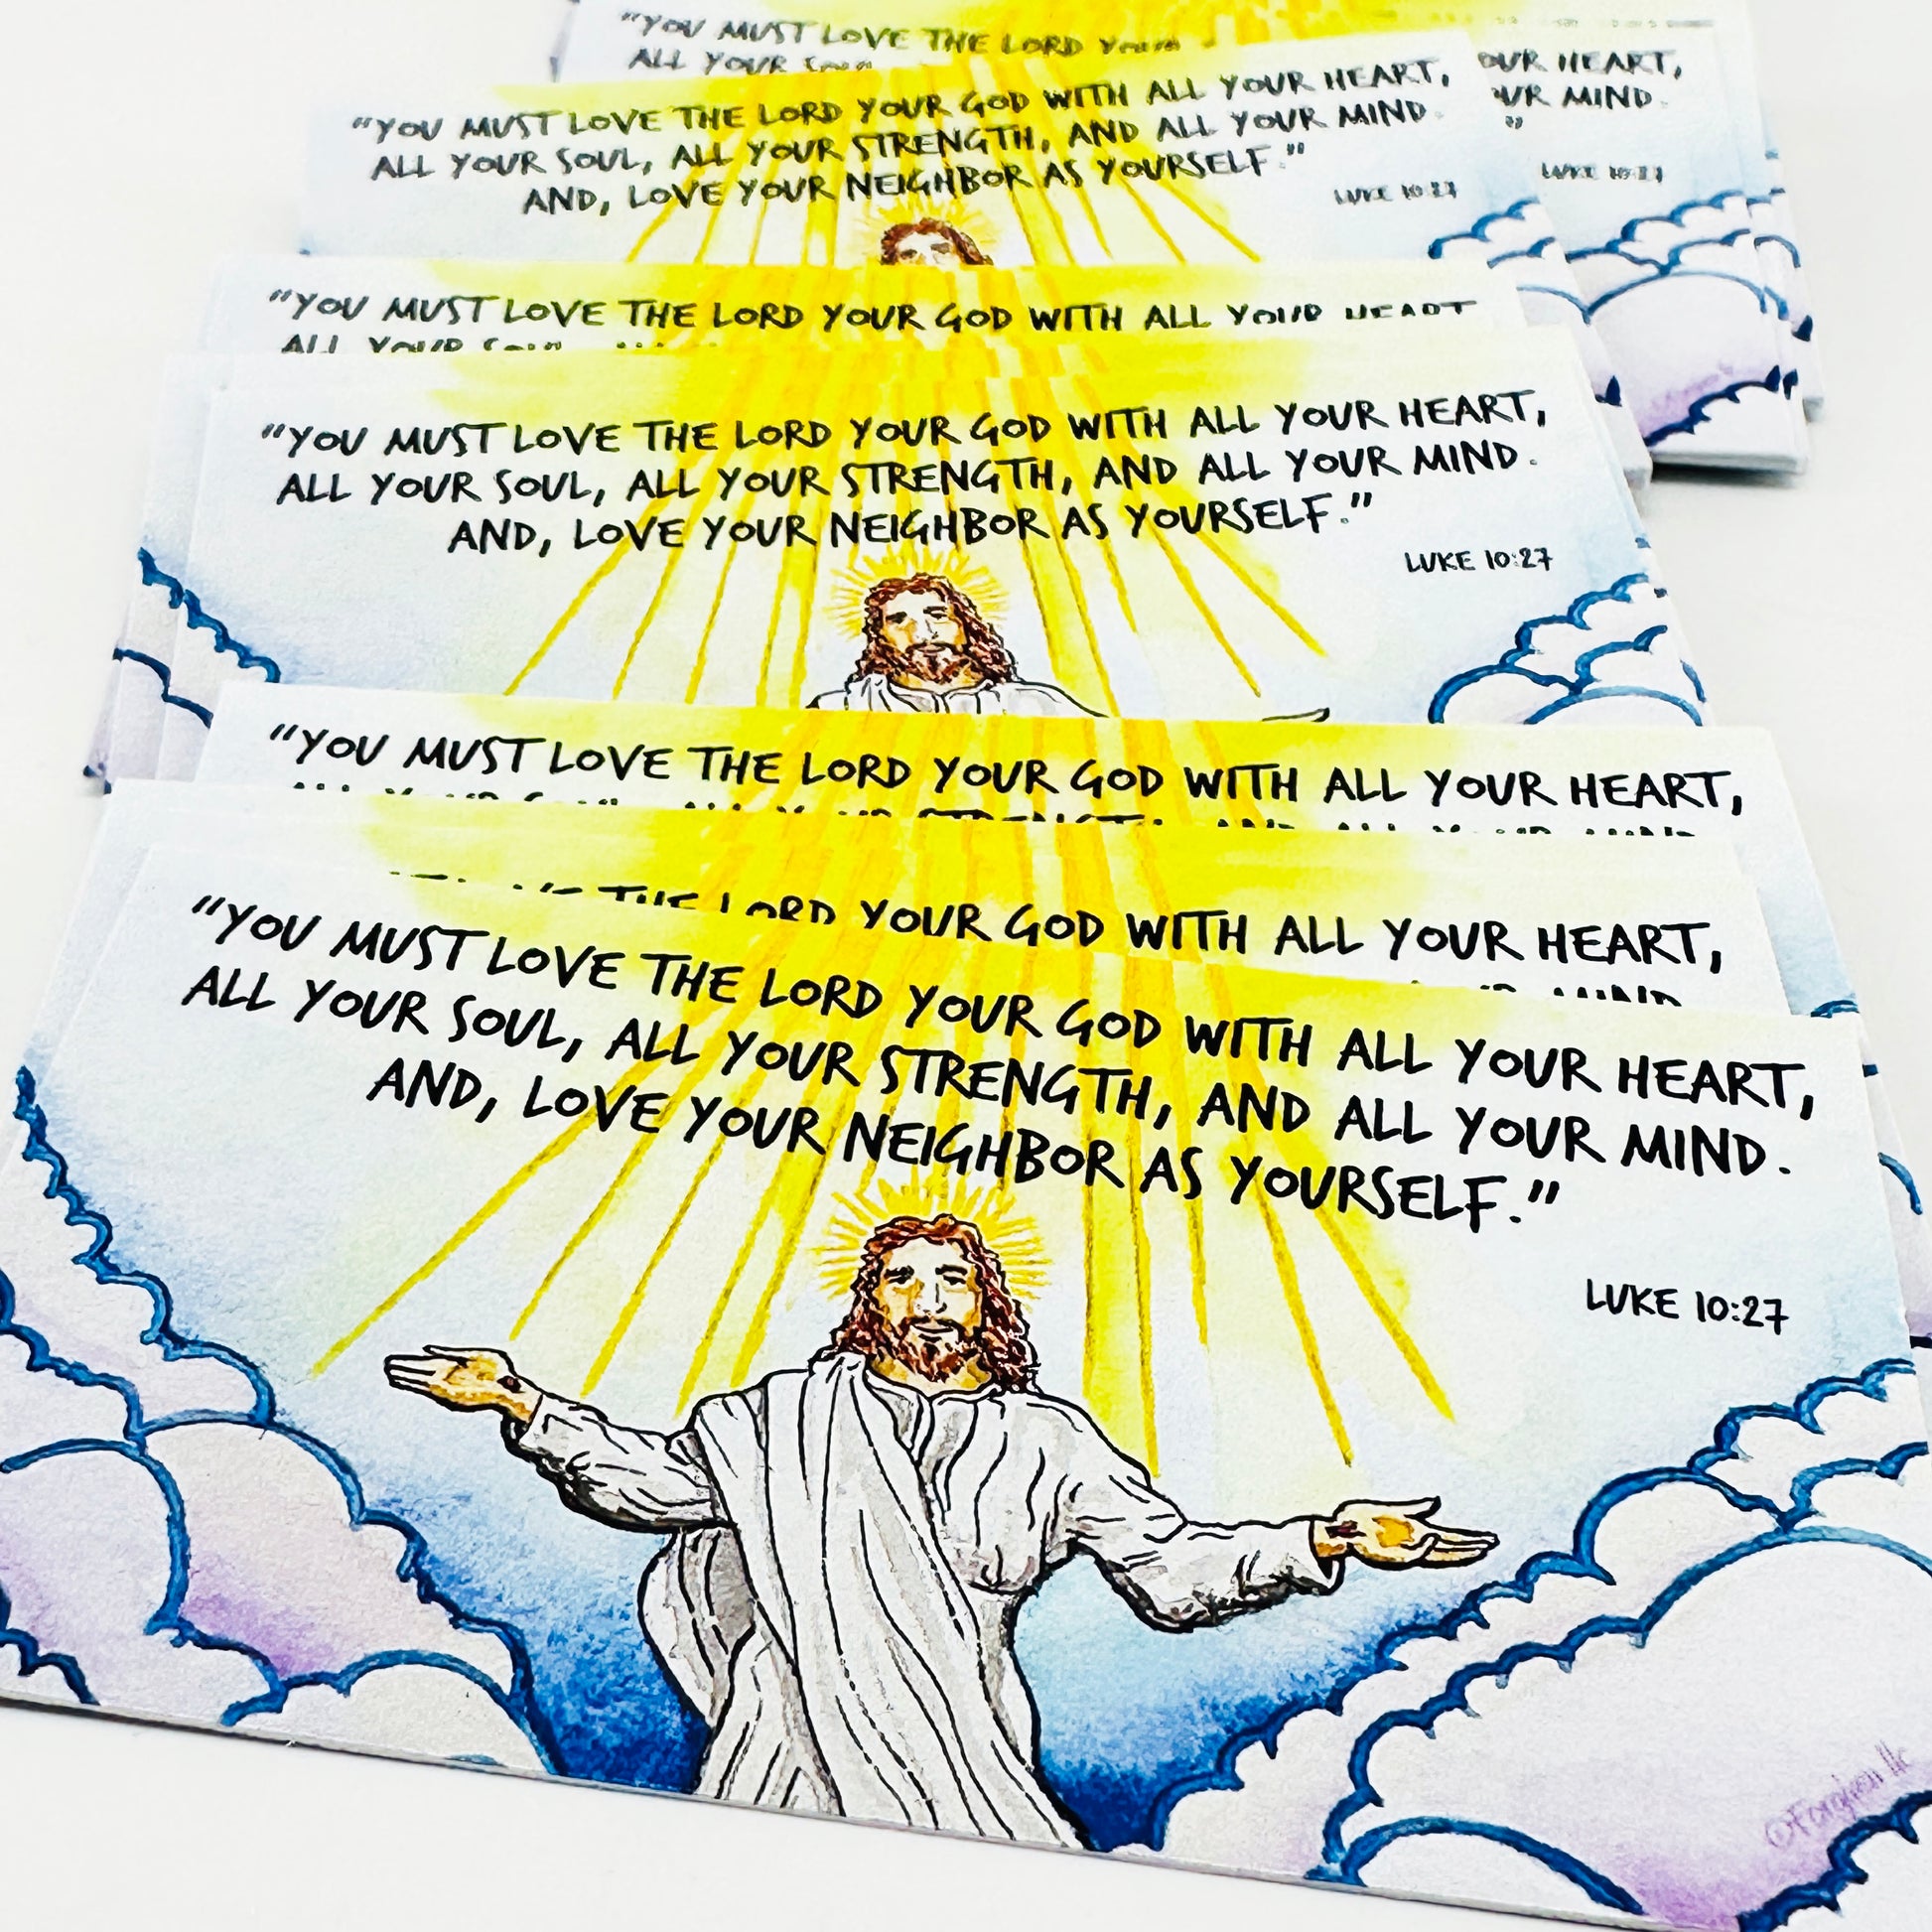 “YOU MUST LOVE THE LORD
ALL YOUR
“YOU MUST LOVE THE LORD YOUR GOD WITH ALL YOUR HEART,
ALL YOUR SOUL, ALL YOUR STRENGTH, AND ALL YOUR MIND.
AND, LOVE YOUR NEIGHBOR AS YOURSELF.”
LUKE 10:27
HEART,
MIND.
”
LUKE 10:27
“YOU MUST LOVE THE LORD YOUR GOD WITH ALL YOUR HEART
ALL YOUR
“YOU MUST LOVE THE LORD YOUR GOD WITH ALL YOUR HEART,
ALL YOUR SOUL, ALL YOUR STRENGTH, AND ALL YOUR MIND.
AND, LOVE YOUR NEIGHBOR AS YOURSELF.”
LUKE 10:27
“YOU MUST LOVE THE LORD YOUR GOD WITH ALL YOUR HEART,
THE LORD YOUR GOD WITH ALL YOUR HEART,
“YOU MUST LOVE THE LORD YOUR GOD WITH ALL YOUR HEART,
ALL YOUR SOUL, ALL YOUR STRENGTH, AND ALL YOUR MIND.
AND, LOVE YOUR NEIGHBOR AS YOURSELF.”
LUKE 10:27